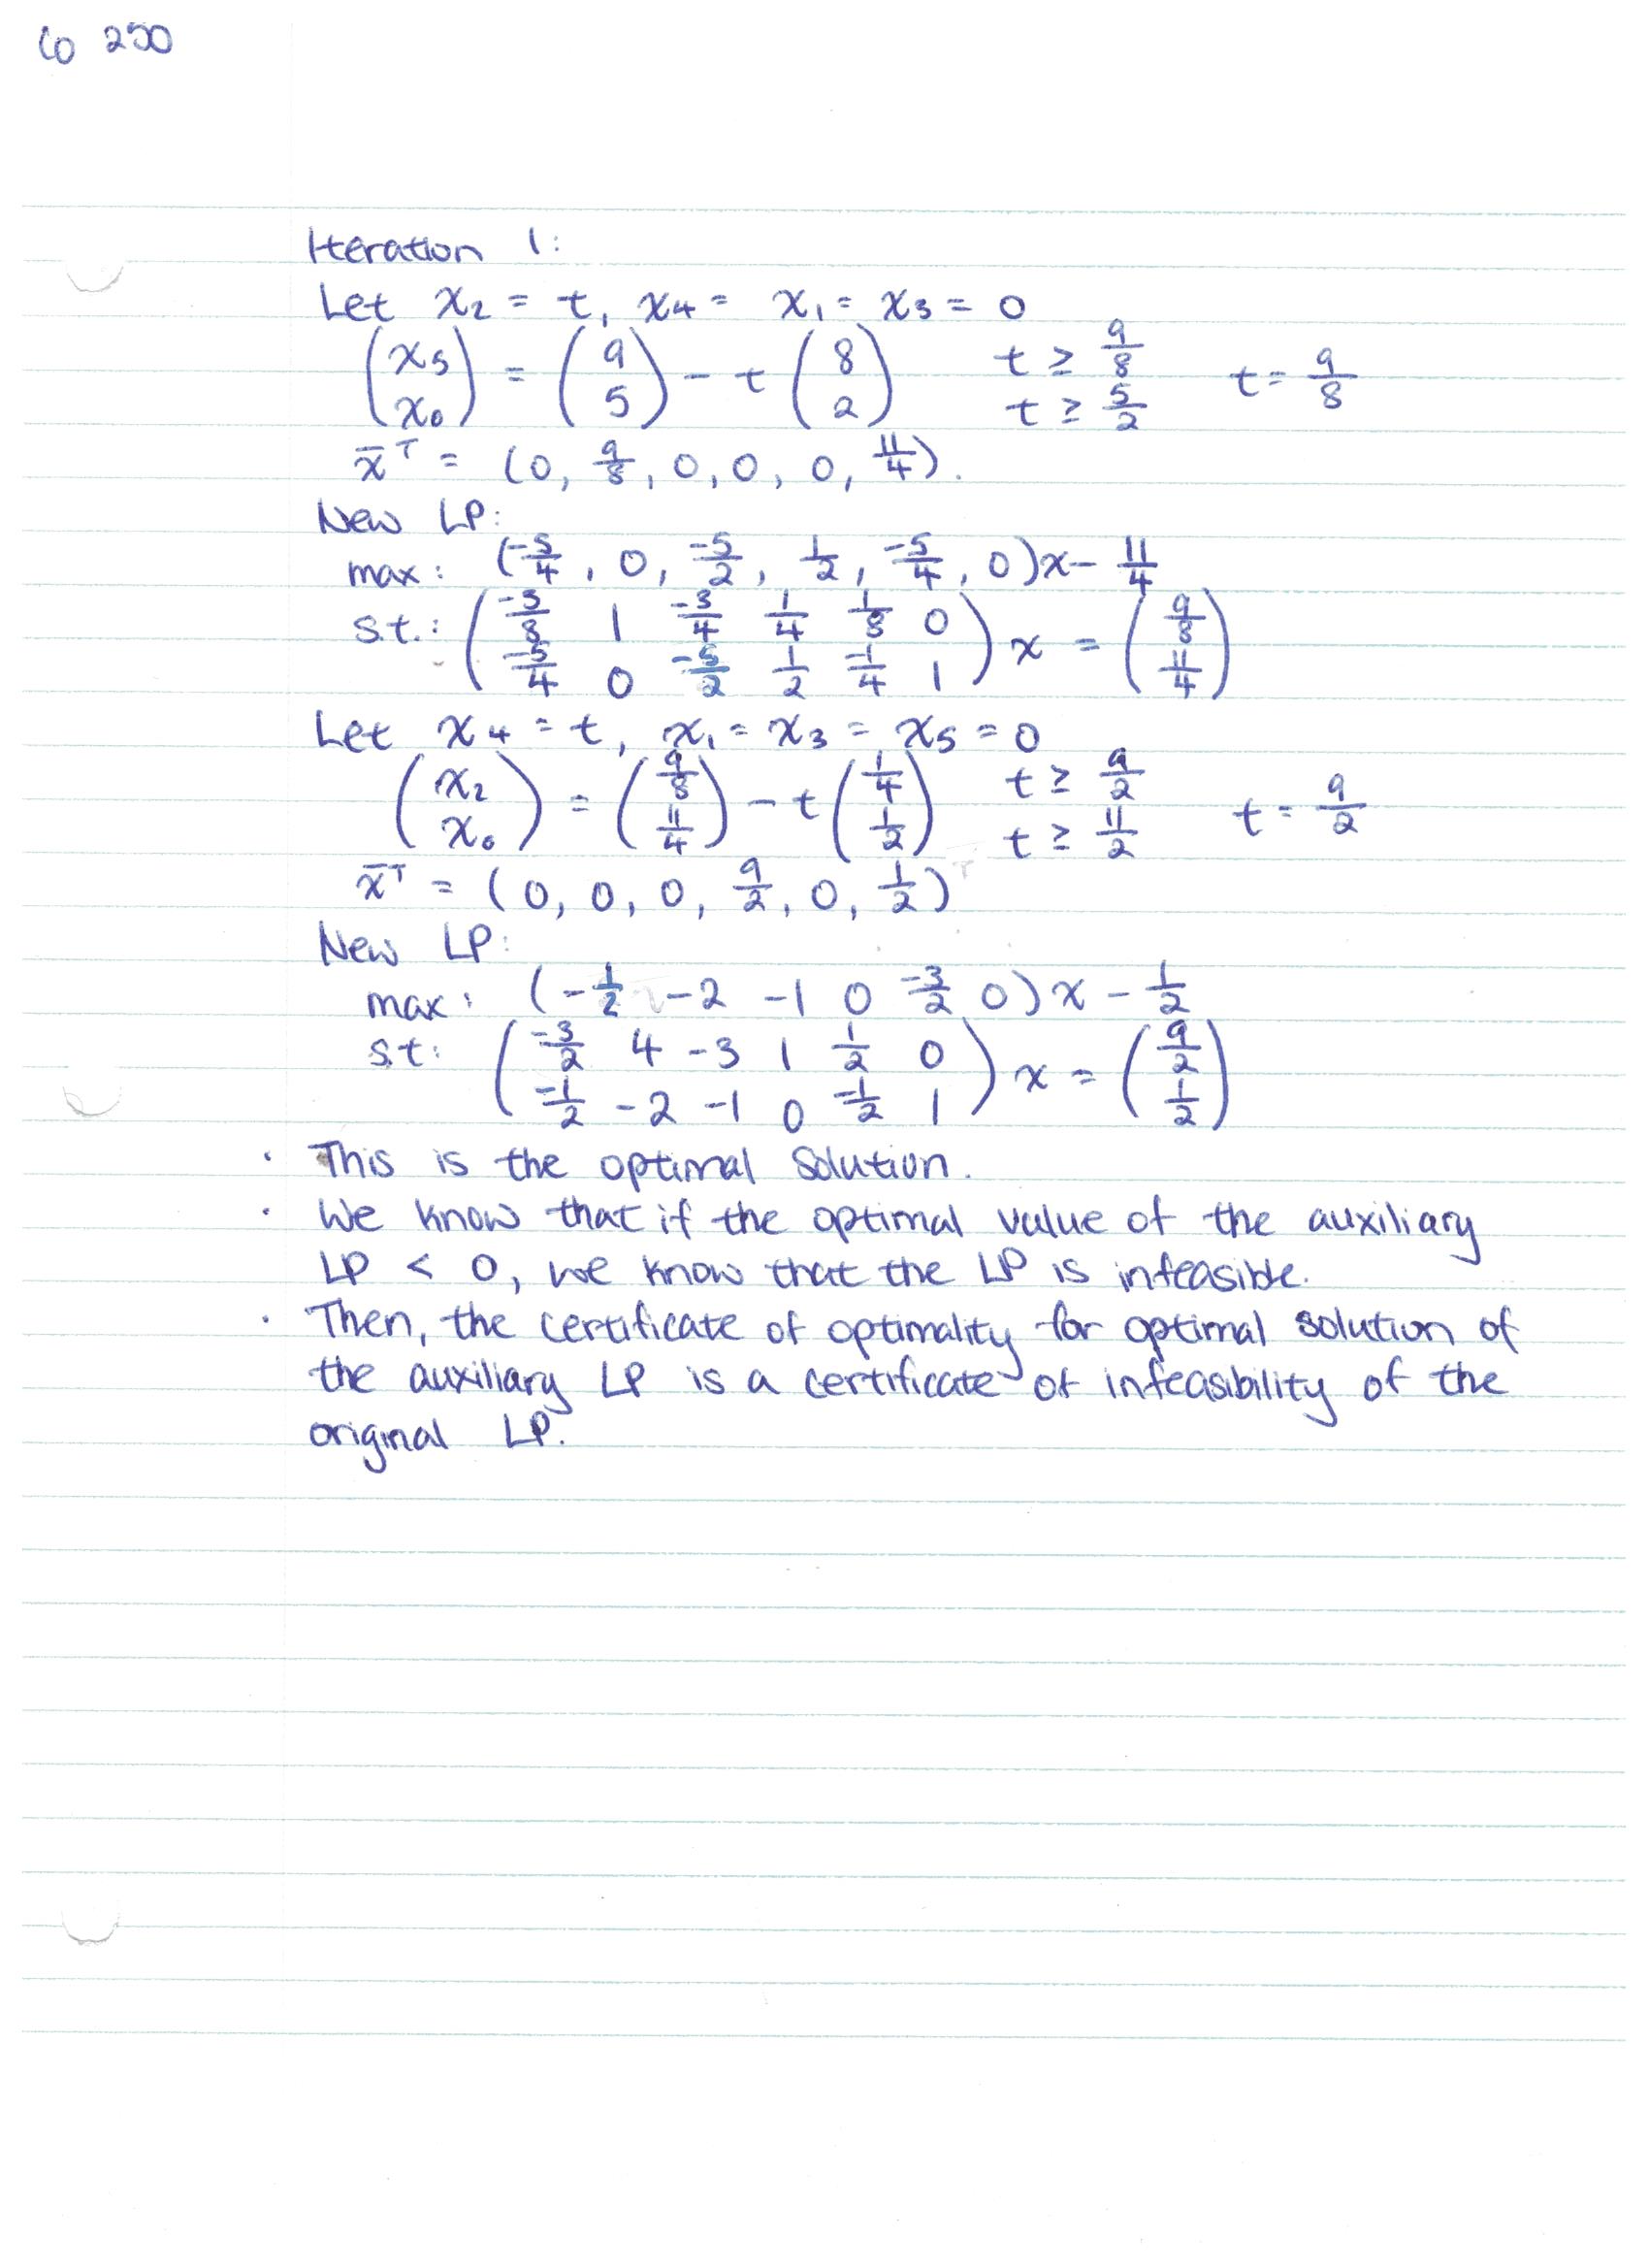 CO 250
Iteration 1:
Let x₂ = t, x₄ = x₁ = x₃ = 0
(x₅; x₀) = (9; 5) - t (8; 2)  t ≥ 9/8  t ≥ 5/2  t = 9/8
x̄ᵀ = (0, 9/8, 0, 0, 0, 11/4).
New LP:
max: (-5/4, 0, -5/2, 1/2, -5/4, 0)x - 11/4
s.t.: (-3/8 1 -3/4 1/4 1/8 0; -5/4 0 -5/2 1/2 -1/4 1) x = (9/8; 11/4)
Let x₄ = t, x₁ = x₃ = x₅ = 0
(x₂; x₀) = (9/8; 11/4) - t (1/4; 1/2)  t ≥ 9/2  t ≥ 11/2  t = 9/2
x̄ᵀ = (0, 0, 0, 9/2, 0, 1/2)
New LP:
max: (-1/2 -2 -1 0 -3/2 0)x - 1/2
s.t: (-3/2 4 -3 1 1/2 0; -1/2 -2 -1 0 -1/2 1) x = (9/2; 1/2)
· This is the optimal solution.
· We know that if the optimal value of the auxiliary
LP < 0, we know that the LP is infeasible.
· Then, the certificate of optimality for optimal solution of
the auxiliary LP is a certificate of infeasibility of the
original LP.